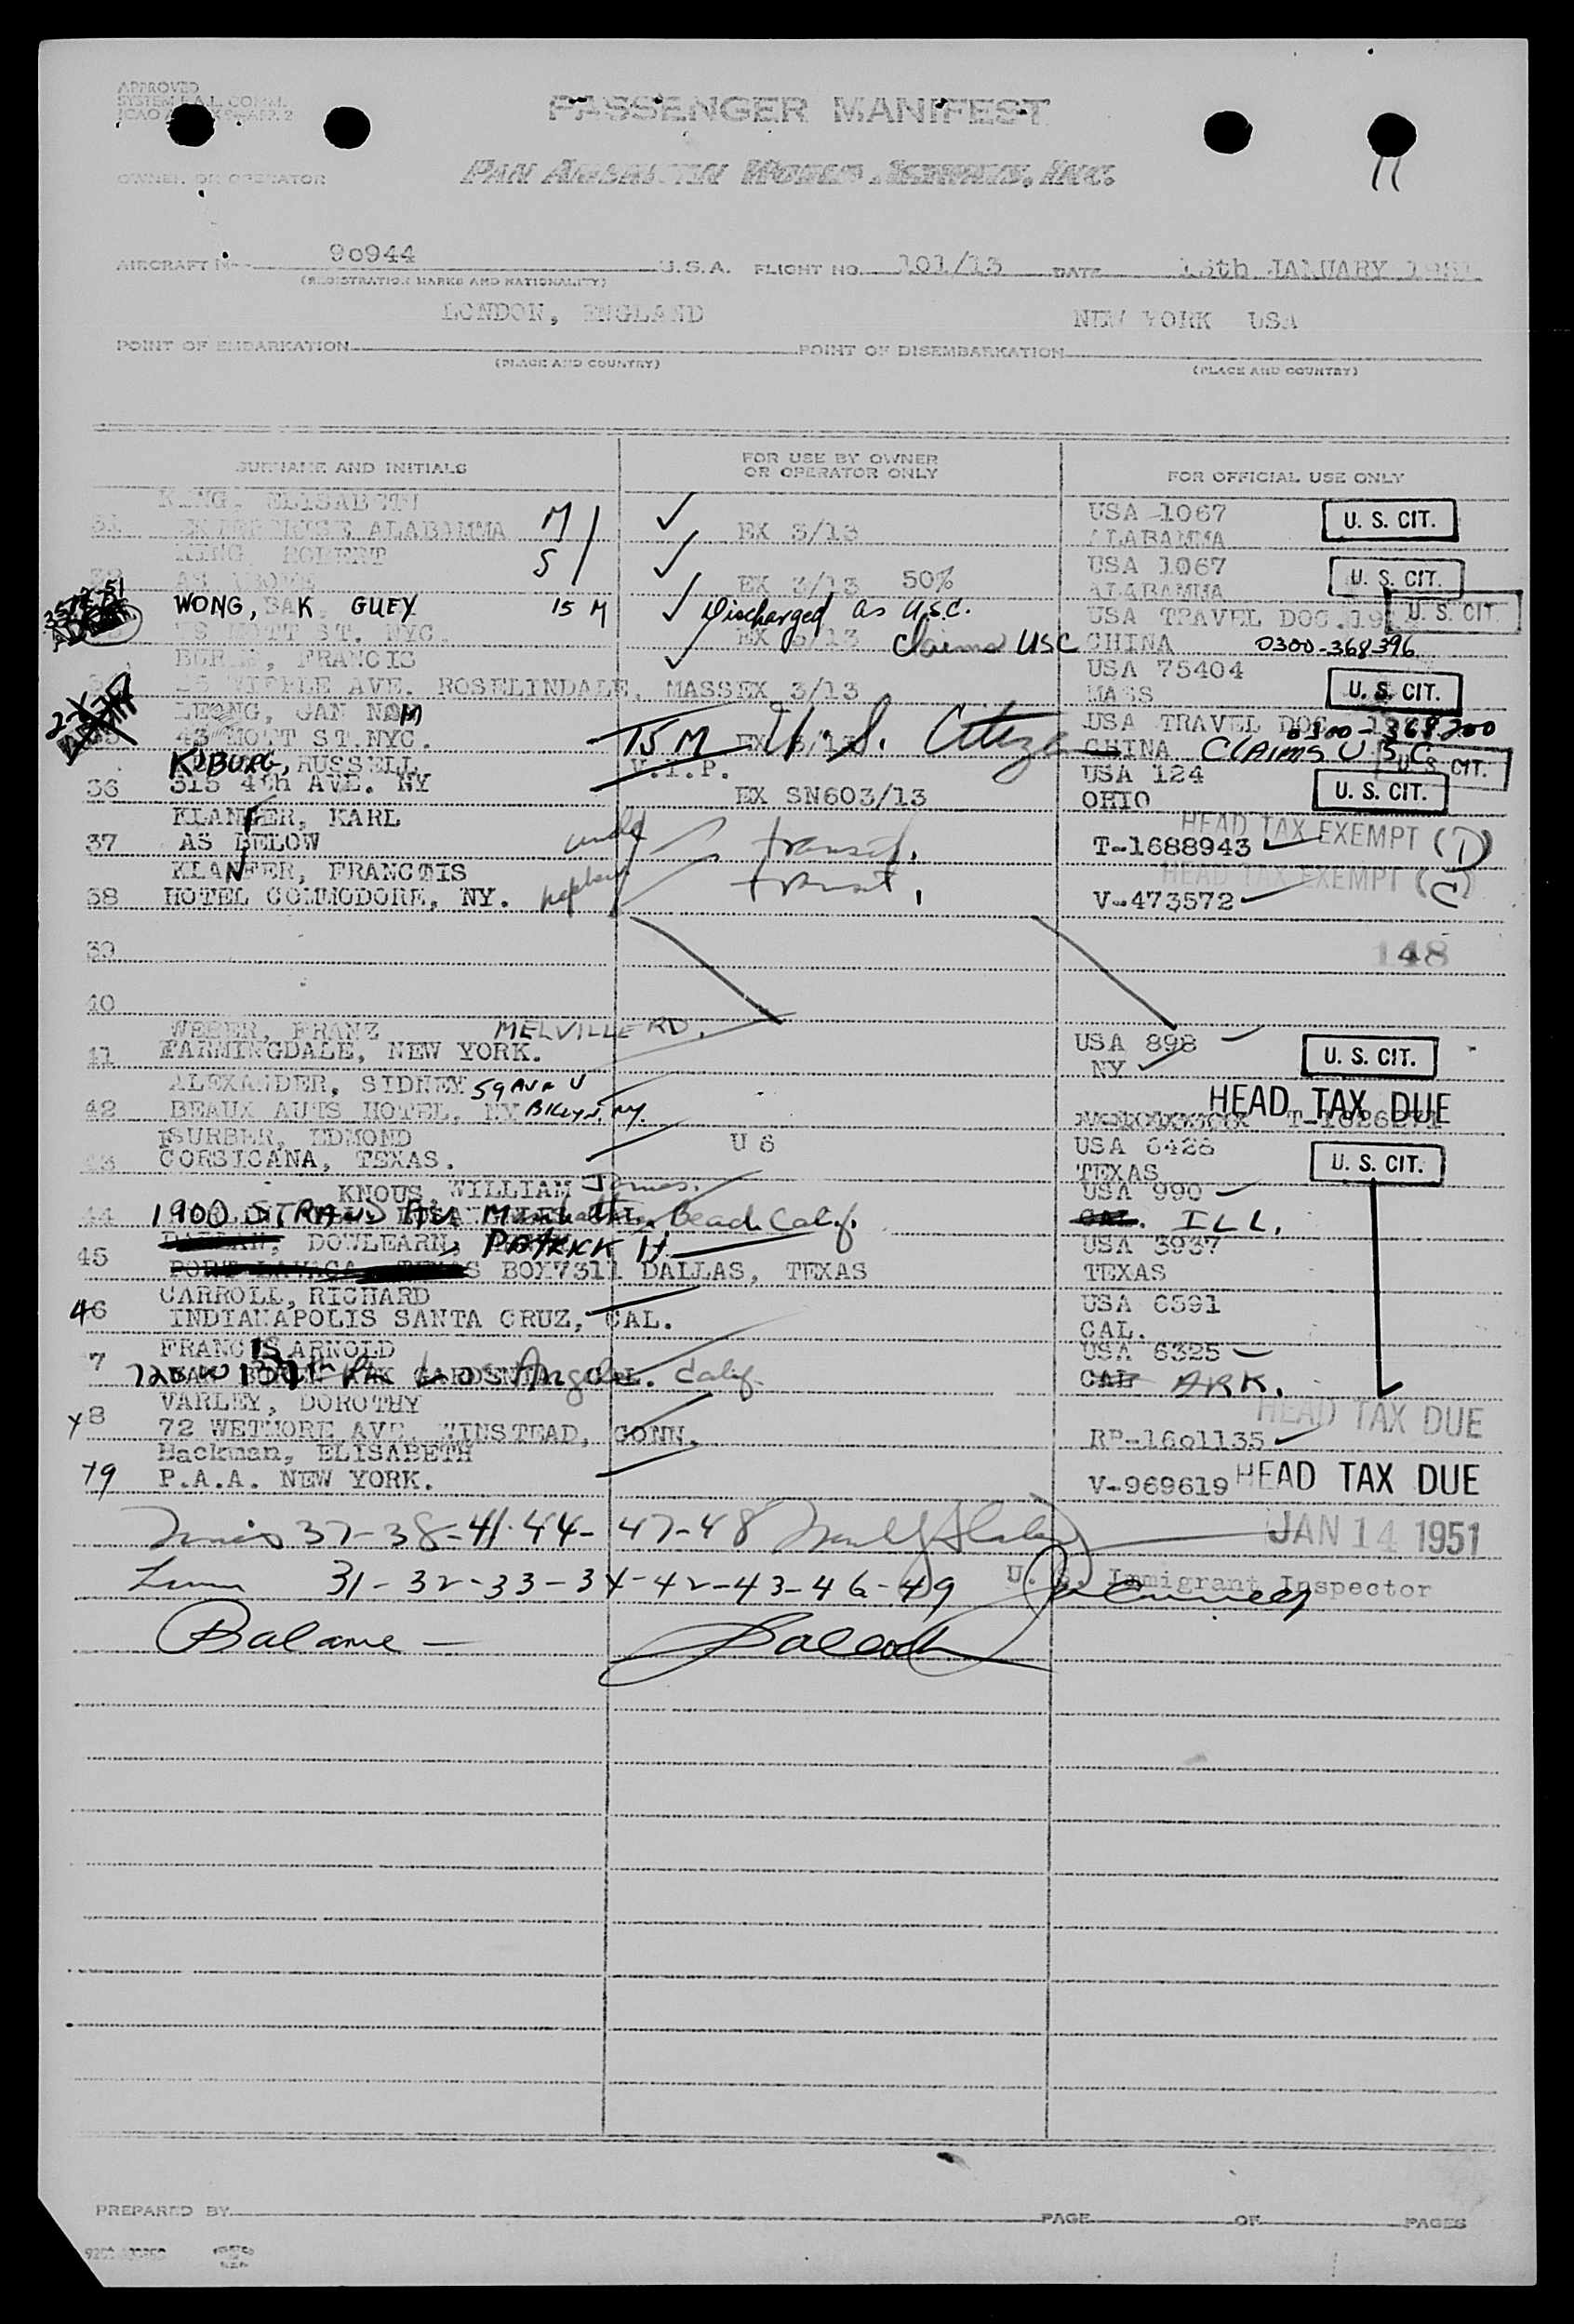 APPROVED
SYSTEM F.A.L. COMM.
PASSENGER MANIFEST
PAN AMERICAN WORLD AIRWAYS, INC.
11
OWNER OR OPERATOR
AIRCRAFT 90944 U.S.A. FLIGHT NO. 101/13 DATE 13th JANUARY 1951
(REGISTRATION MARKS AND NATIONALITY)
LONDON, ENGLAND NEW YORK USA
POINT OF EMBARKATION POINT OF DISEMBARKATION
(PLACE AND COUNTRY) (PLACE AND COUNTRY)
SURNAME AND INITIALS FOR USE BY OWNER OR OPERATOR ONLY FOR OFFICIAL USE ONLY
KING, ELISABETH USA 1067 U. S. CIT.
31 ALABAMMA M EX 3/13 ALABAMMA
KING S USA 1067 U. S. CIT.
32 AS ABOVE EX 3/13 50% ALABAMMA
WONG, BAK GUEY 15 M Discharged as U.S.C. USA TRAVEL DOC. U. S. CIT.
MOTT ST. NYC. EX 3/13 Claims USC CHINA 0300-368396
FRANCIS USA 75404
AVE. ROSELINDALE, MASS EX 3/13 MASS U. S. CIT.
LEONG, GAN NOM USA TRAVEL DOC. 0300-368200
35 43 MOTT ST. NYC. 15 M U. S. Citize CHINA CLAIMS U S C U. S. CIT.
KIBURG, RUSSELL V.I.P. USA 124
36 315 4th AVE. NY EX SN603/13 OHIO U. S. CIT.
KLANFER, KARL HEAD TAX EXEMPT (1)
37 AS BELOW uncle transit. T-1688943
KLANFER, FRANCTIS HEAD TAX EXEMPT (C)
38 HOTEL COMMODORE, NY. nephew transit. V-473572
39 148
40
WEBER, FRANZ MELVILLE RD. USA 898
41 FARMINGDALE, NEW YORK. NY U. S. CIT.
ALEXANDER, SIDNEY 59 AVE U HEAD TAX DUE
42 BEAUX AUTS HOTEL, NY BKLYN. NY. T-1826271
SURBER, EDMOND U S USA 6428
43 CORSICANA, TEXAS. TEXAS U. S. CIT.
KNOUS, WILLIAM James. USA 990
44 1900 STRAND Manhattan Beach Calif. CAL. ILL.
45 DOWLEARN, PATRICK H USA 3937
BOX7311 DALLAS, TEXAS TEXAS
CARROLL, RICHARD USA 6591
46 INDIANAPOLIS SANTA CRUZ, CAL. CAL.
FRANCIS ARNOLD USA 6325
7 Los Angeles. Calif. CAL ARK.
VARLEY, DOROTHY HEAD TAX DUE
48 72 WETMORE AVE. WINSTEAD, CONN. RP-1601135
Hackman, ELISABETH
49 P.A.A. NEW YORK. V-969619 HEAD TAX DUE
37-38-41-44-47-48 JAN 14 1951
31-32-33-34-42-43-46-49 U. S. Immigrant Inspector
Balance
PREPARED BY PAGE OF PAGES